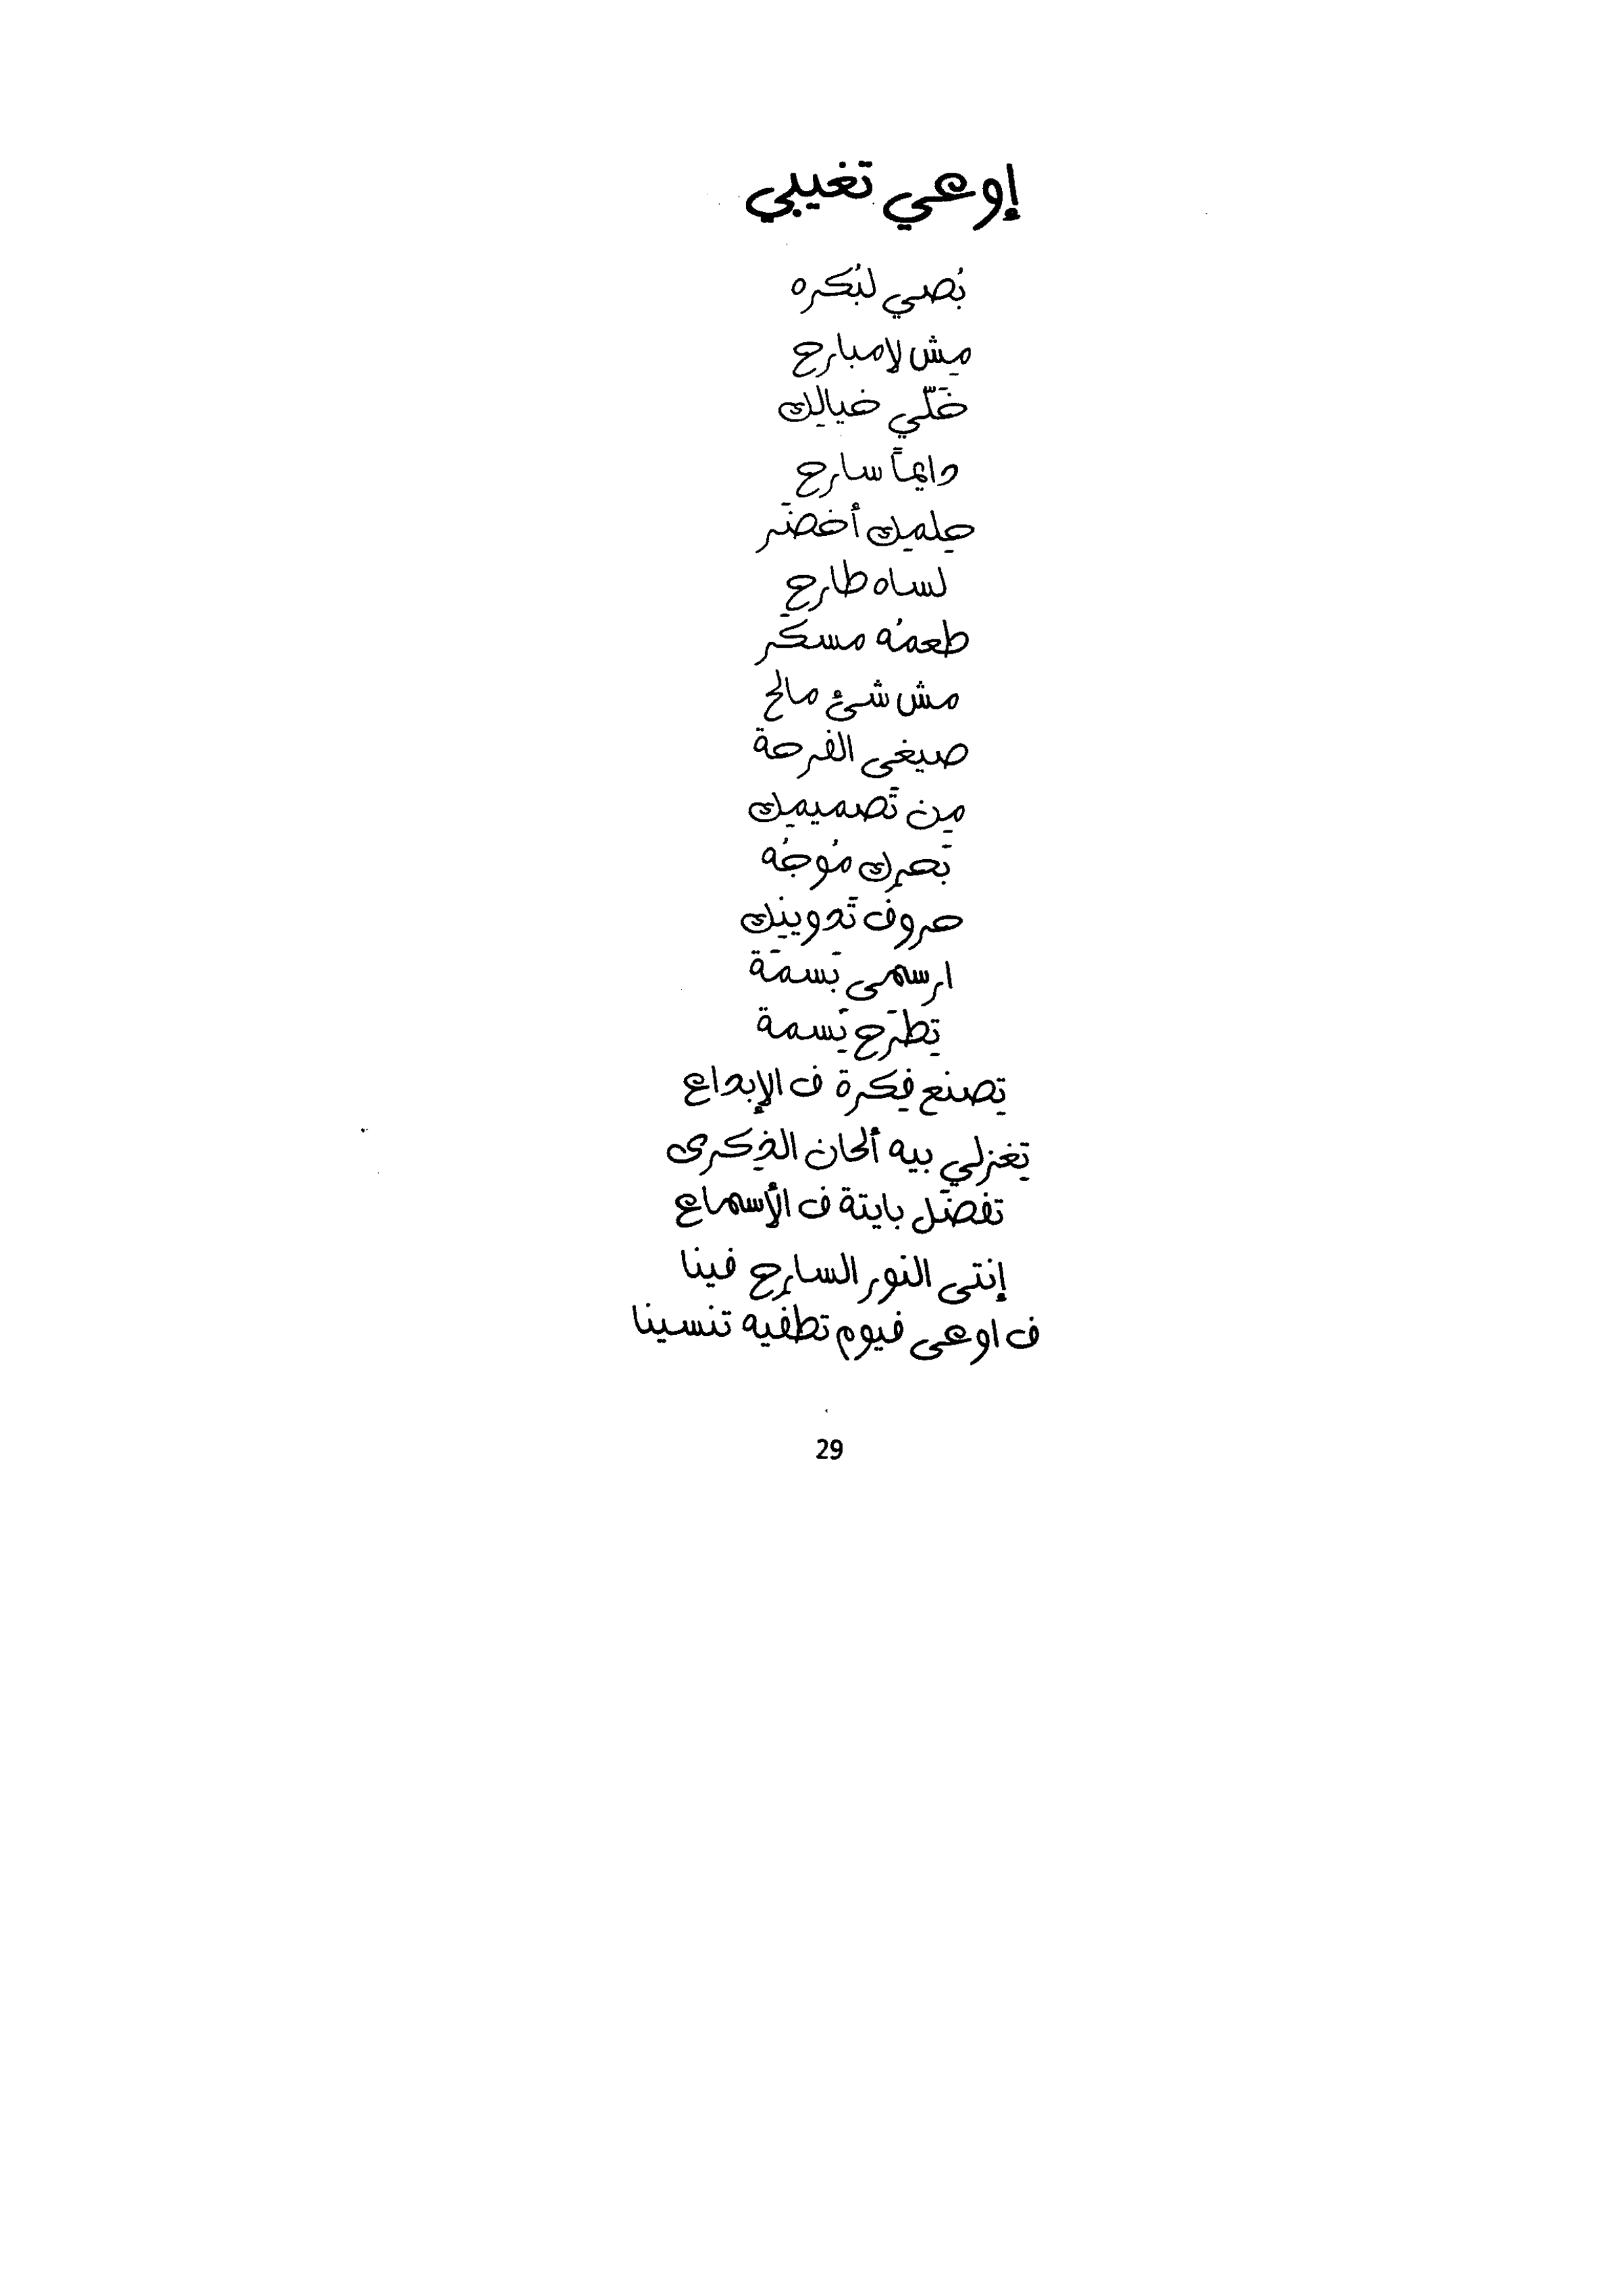 إوعي تغيبي
بُصي لبُكره
مِش لامبارح
خَلّي خيالِك
دايماً سارح
حِلمِك أخضَر
لساه طارح
طعمُه مسكَّر
مش شئ مالح
صيغى الفرحة
مِن تَصميمِك
بَحرِك مُوجُه
حروف تَدوينِك
ارسمى بَسمَة
تِطرَح نِسمة
تِصنع فِكرة ف الإبداع
تِغزلي بيه ألحان الذِكرى
تفضَل بايتة ف الأسماع
إنتى النور السارِح فينا
ف اوعى فيوم تطفيه تنسينا
29